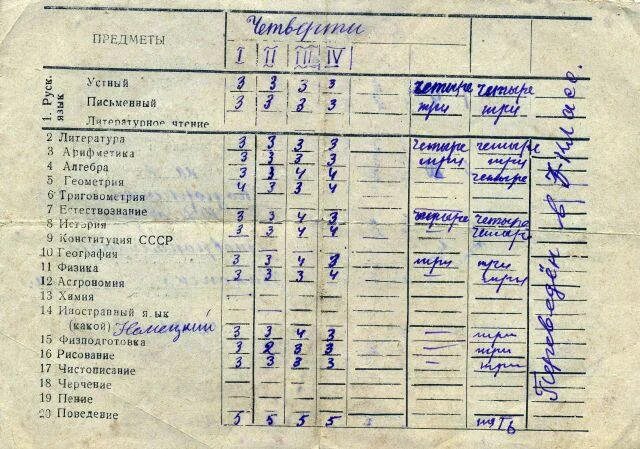 Четверти
ПРЕДМЕТЫ I II III IV
1. Русск. язык
Устный 3 3 3 3 четыре четыре
Письменный 3 3 3 3 три три
Литературное чтение
2 Литература 3 3 3 3 четыре четыре
3 Арифметика 3 3 3 3 три три
4 Алгебра 3 3 4 4 — четыре
5 Геометрия 4 3 3 4
6 Тригонометрия
7 Естествознание 3 3 4 3 четыре четыре
8 История 3 3 4 4 —
9 Конституция СССР
10 География 3 3 4 три три
11 Физика 3 3 3 4 — три
12 Астрономия
13 Химия
14 Иностранный язык
(какой) Немецкий 3 3 4 3 — три
15 Физподготовка 3 2 3 3 — три
16 Рисование 3 3 3 3 — три
17 Чистописание
18 Черчение
19 Пение
20 Поведение 5 5 5 5 пять
Переведён в класс.